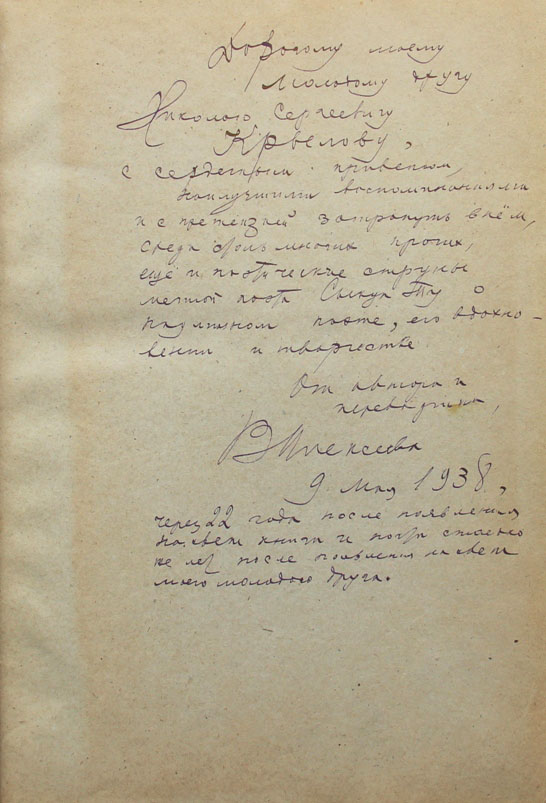 Дорогому моему
молодому другу
Николаю Сергеевичу
Крылову,
с сердечным приветом,
наилучшими воспоминаниями
и с претензией затронуть в нём,
среди столь многих прочих,
ещё и поэтические струны
поэта Сыкун Ту о
поэте, его вдохно-
вении и творчестве.
От автора и
переводчика,
В Алексеева
9 мая 1938,
через 22 года после появления
на свет книги и почти столько
же лет после появления на свет
моего молодого друга.